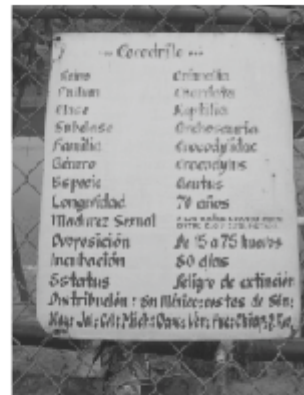 --- Cocodrilo ---
Reino Animalia
Filum Chordata
Clase Reptilia
Subclase Archosauria
Familia Crocodylidae
Género Crocodylus
Especie Acutus
Longevidad 70 años
Madurez Sexual
Ovoposición De 15 a 75 huevos
Incubación 80 días
Estatus Peligro de extinción
Distribución: En México: costas de Sin:
Nay: Jal: Col: Mich: Oax: Ver: